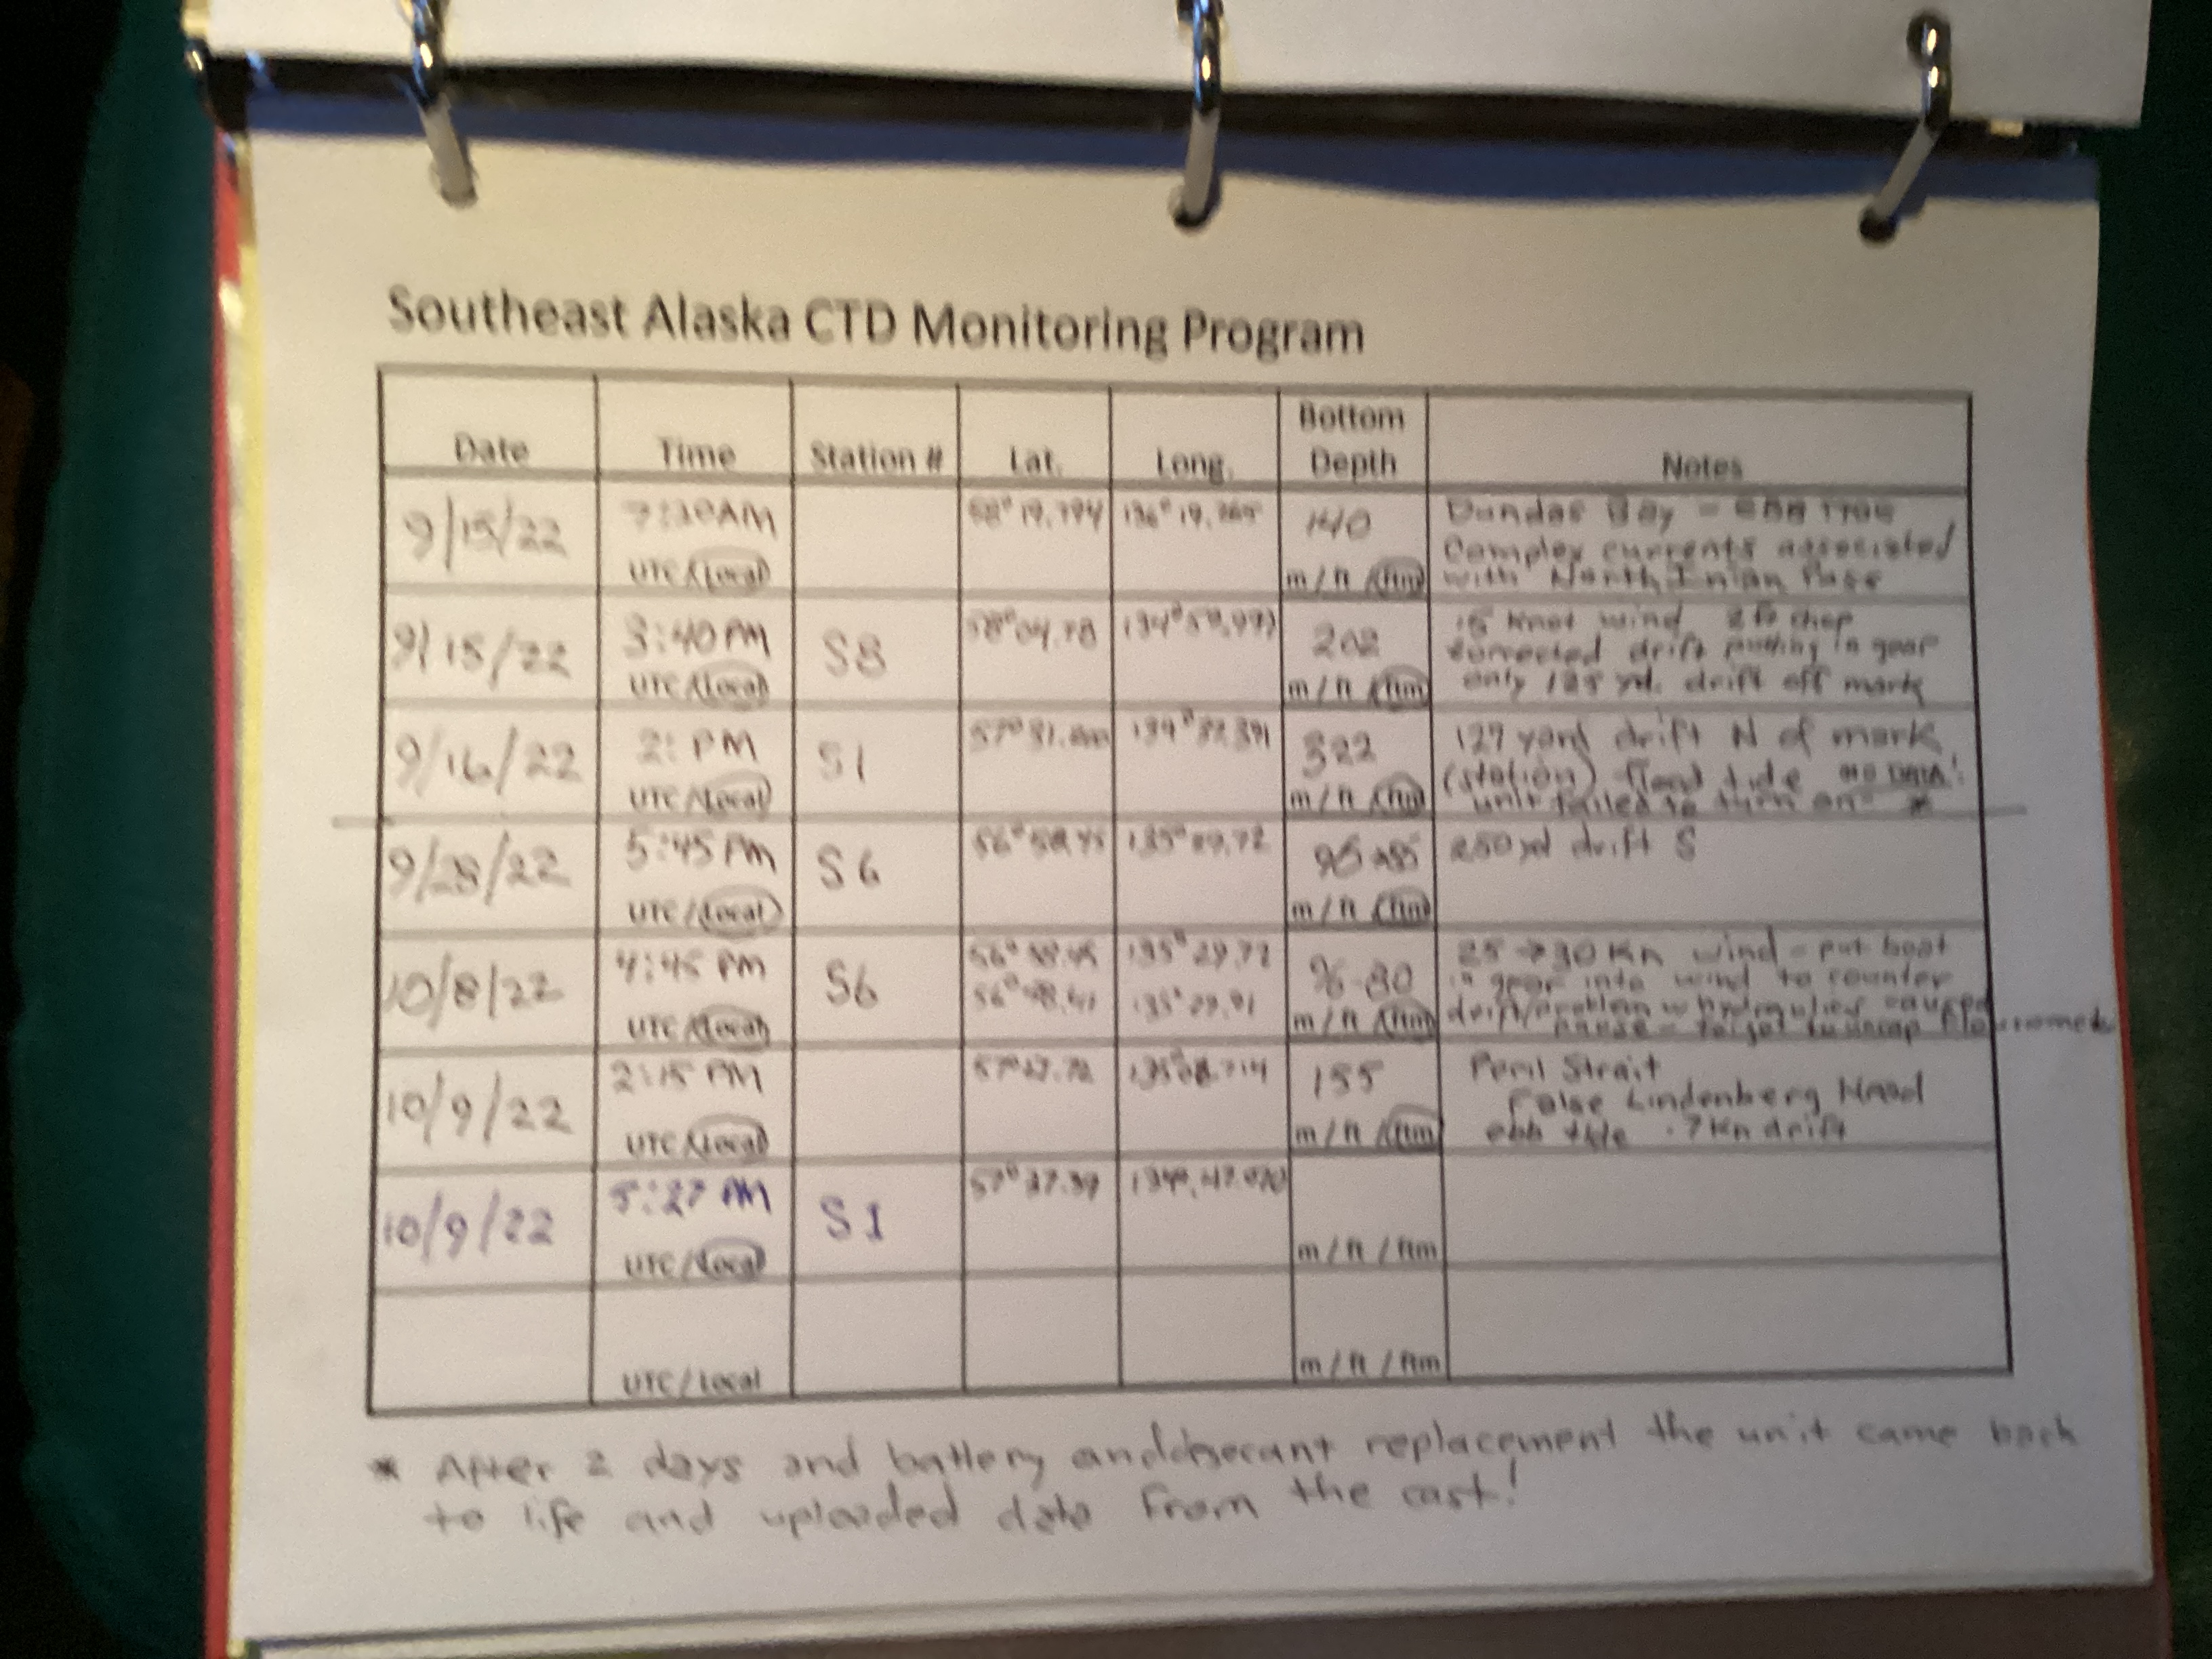 Southeast Alaska CTD Monitoring Program
Date Time Station # Lat. Long. Bottom Depth Notes
9/15/22 7:20AM UTC / Local 136° 19. 140 m / ft / ftm
Dundas Bay - ebb tide
Complex currents associated
with North Inian Pass
9/15/22 3:40 PM UTC / Local S8 58°04.78 202 m / ft / ftm
15 knot wind 2 ft chop
corrected drift putting in gear
only 125 yd. drift off mark
9/16/22 2: PM UTC / Local S1 57° 322 m / ft / ftm
127 yard drift N of mark
(station) flood tide no DATA!
unit failed to turn on *
9/28/22 5:45 PM UTC / Local S6 m / ft / ftm
250 yd drift S
10/8/22 4:45 PM UTC / Local S6 135° 29.72 m / ft / ftm
25 → 30 Kn wind - put boat
in gear into wind to counter
drift/problem w hydraulics caused
pause - forgot to uncap flourometer
10/9/22 2:15 PM UTC / Local 155 m / ft / ftm
Peril Strait
False Lindenberg Head
ebb tide .7 Kn drift
10/9/22 5:27 PM UTC / Local S1 m / ft / ftm
UTC / Local m / ft / ftm
* After 2 days and battery and replacement the unit came back
to life and uploaded data from the cast!